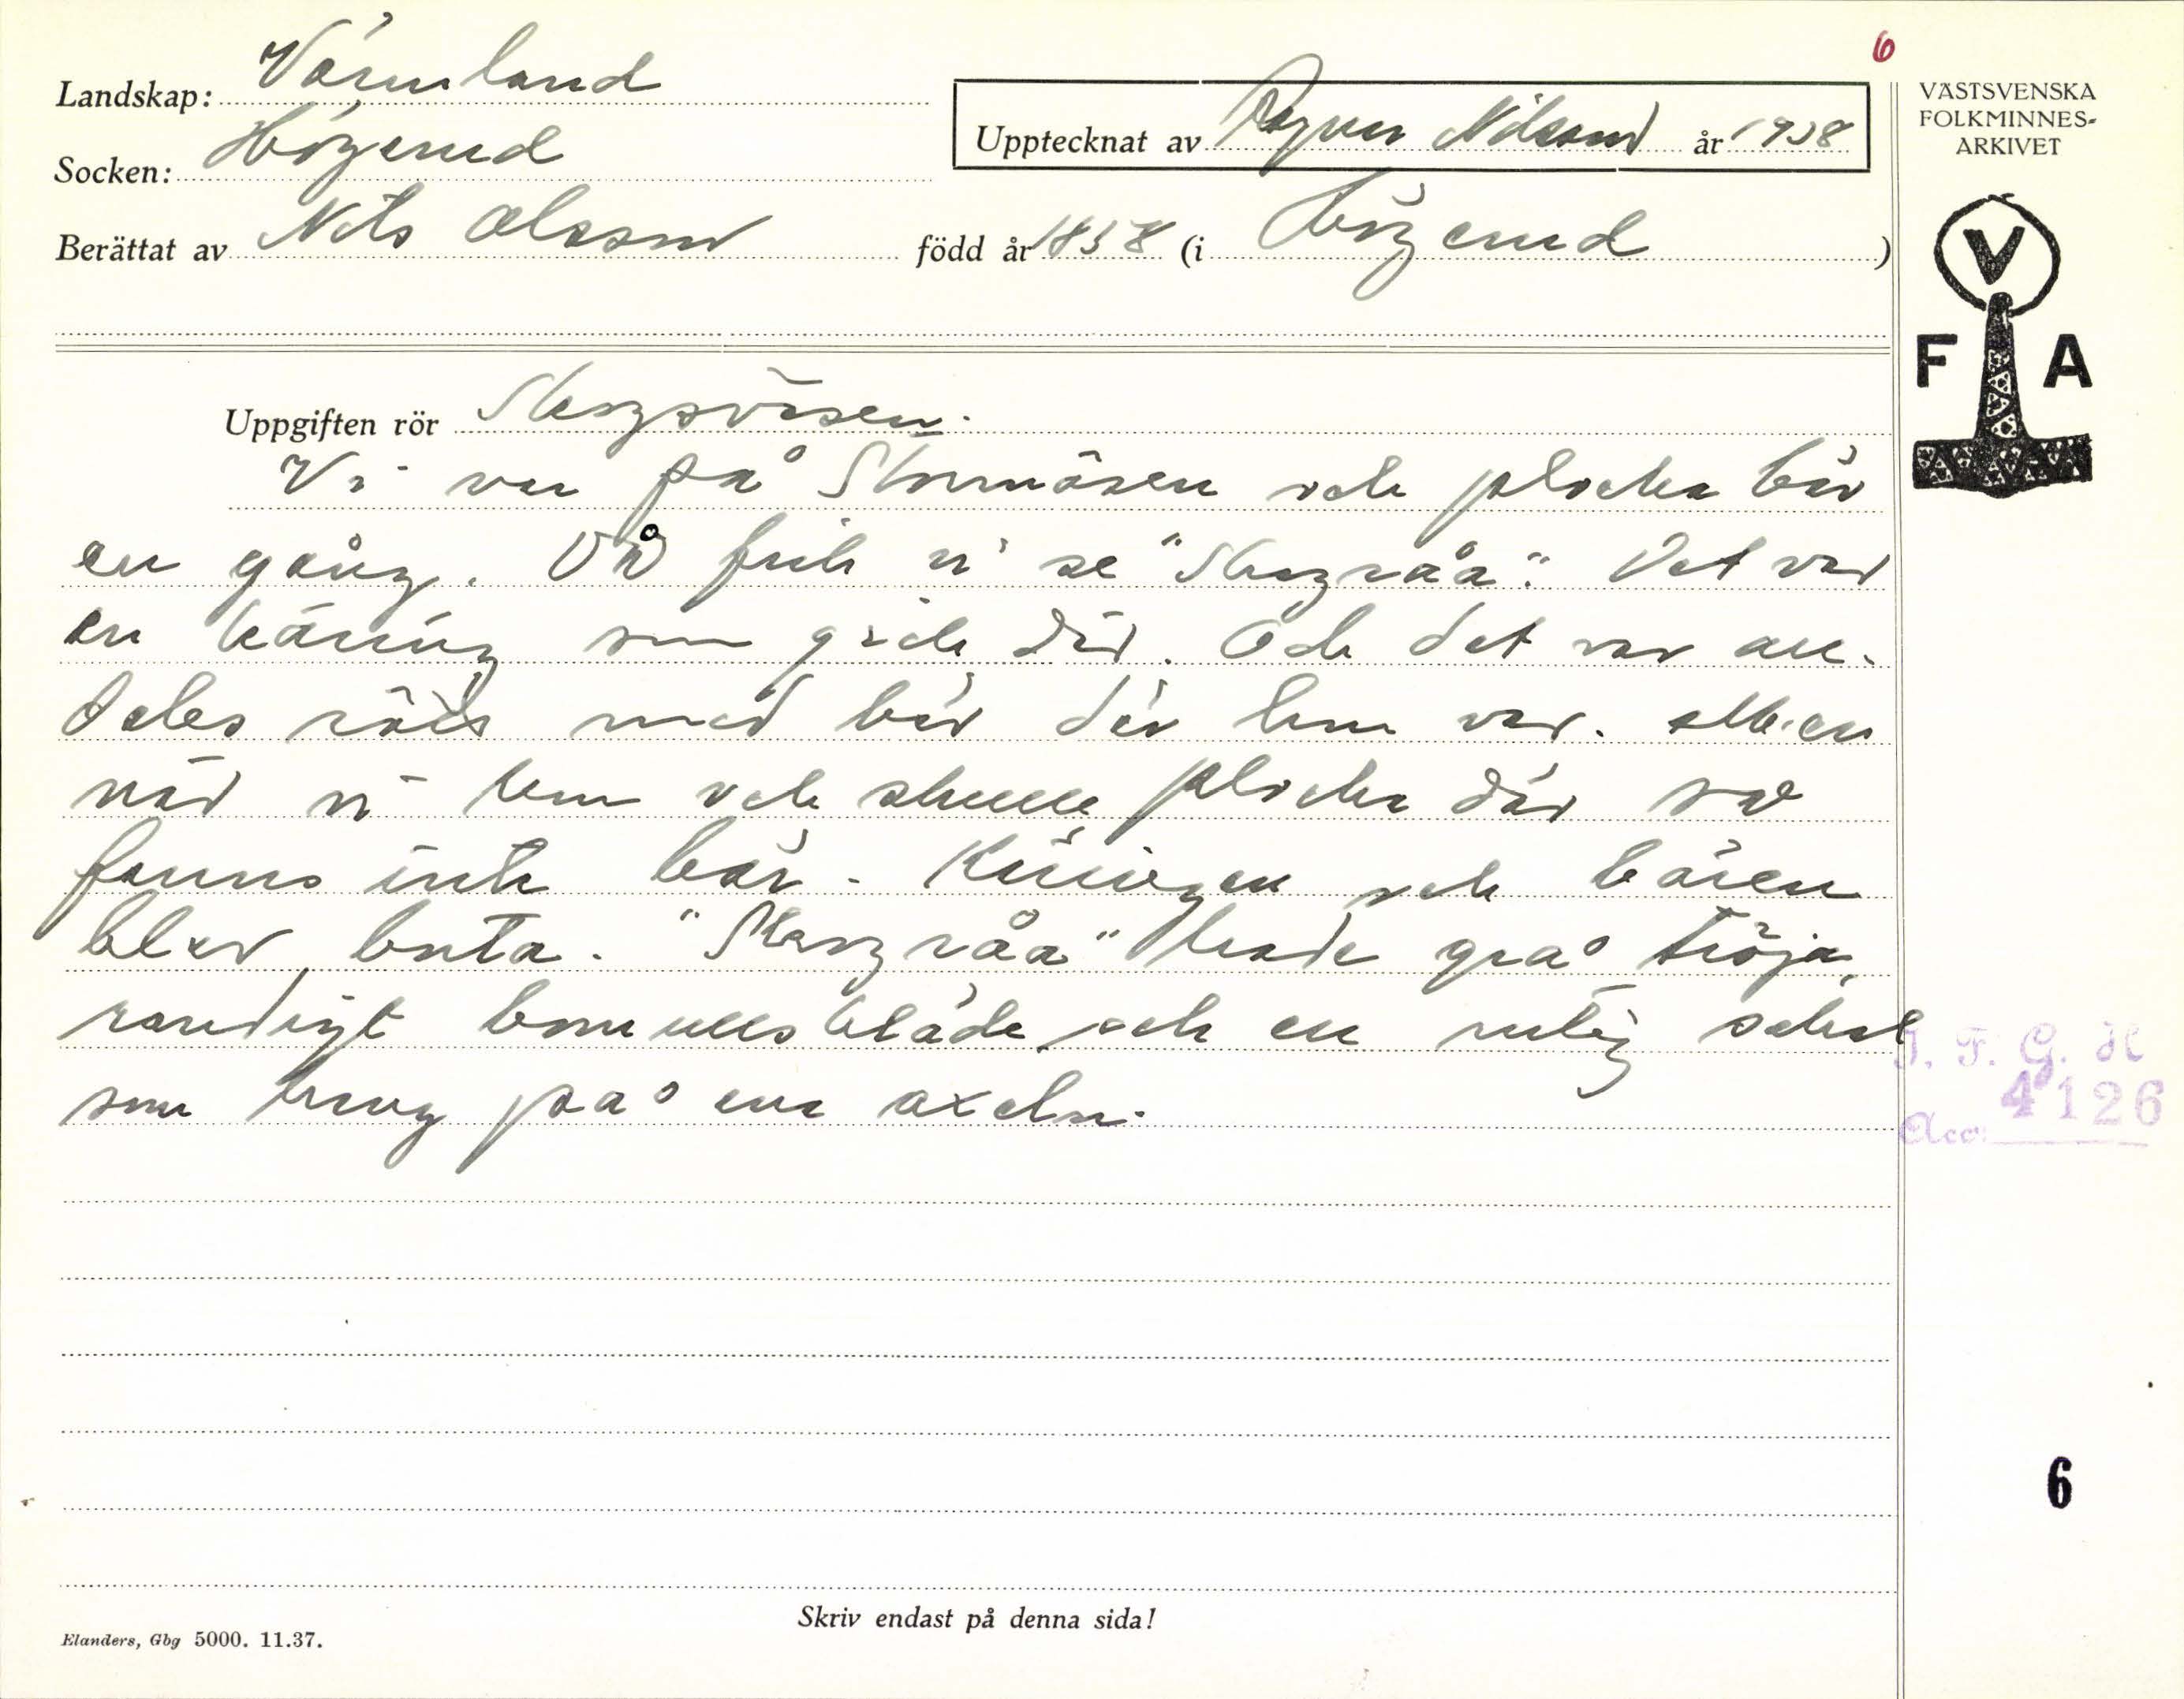 6
Landskap: Värmland
Socken: Högerud
Berättat av Nils Olsson född år 1858 (i Högerud)
Upptecknat av Ragnar Nilsson år 1938
VÄSTSVENSKA
FOLKMINNES-
ARKIVET
V
F A
Uppgiften rör Skogsväsen.
Vi var på Stormåsen och plocka bär
en gång. Då fick vi se "Skogråa". Det var
en käring som gick där. Och det var all-
deles rött med bär där hon var. Men
när vi kom och skulle plocka där så
fanns inte bär. Käringen och bären
blev borta. "Skogråa" hade grå tröja,
randigt bomullskläde och en rutig schal
som hang på ena axeln.
I. F. G. H
Acc: 4126
6
Skriv endast på denna sida!
Elanders, Gbg 5000. 11.37.